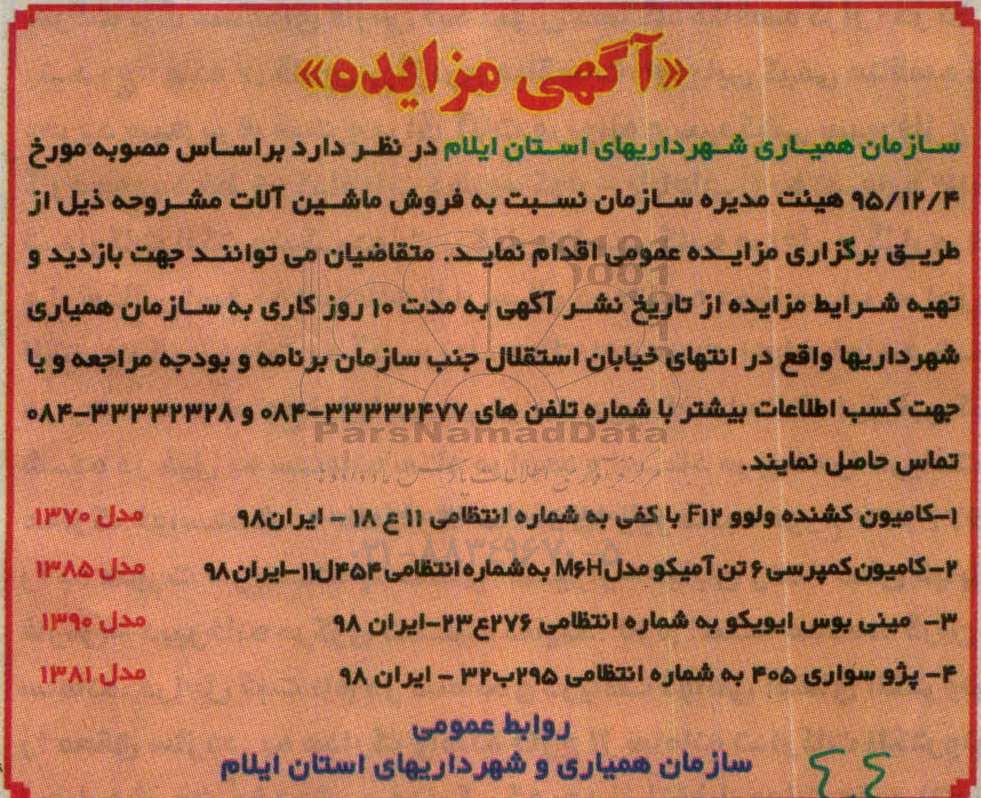 «آگهی مزایده»
سازمان همیاری شهرداریهای استان ایلام در نظر دارد براساس مصوبه مورخ
۹۵/۱۲/۴ هیئت مدیره سازمان نسبت به فروش ماشین آلات مشروحه ذیل از
طریق برگزاری مزایده عمومی اقدام نماید. متقاضیان می توانند جهت بازدید و
تهیه شرایط مزایده از تاریخ نشر آگهی به مدت ۱۰ روز کاری به سازمان همیاری
شهرداریها واقع در انتهای خیابان استقلال جنب سازمان برنامه و بودجه مراجعه و یا
جهت کسب اطلاعات بیشتر با شماره تلفن های ۳۳۳۳۲۴۷۷-۰۸۴ و ۳۳۳۳۲۳۲۸-۰۸۴
ParsNamadData
تماس حاصل نمایند.
۱-کامیون کشنده ولوو F۱۲ با کفی به شماره انتظامی ۱۱ ع ۱۸ - ایران۹۸ مدل ۱۳۷۰
۲- کامیون کمپرسی ۶ تن آمیکو مدل M۶H به شماره انتظامی ۴۵۴ل۱۱-ایران۹۸ مدل ۱۳۸۵
۳- مینی بوس ایویکو به شماره انتظامی ۲۷۶ع۲۳-ایران ۹۸ مدل ۱۳۹۰
۴- پژو سواری ۴۰۵ به شماره انتظامی ۲۹۵ب۳۲ - ایران ۹۸ مدل ۱۳۸۱
روابط عمومی
سازمان همیاری و شهرداریهای استان ایلام